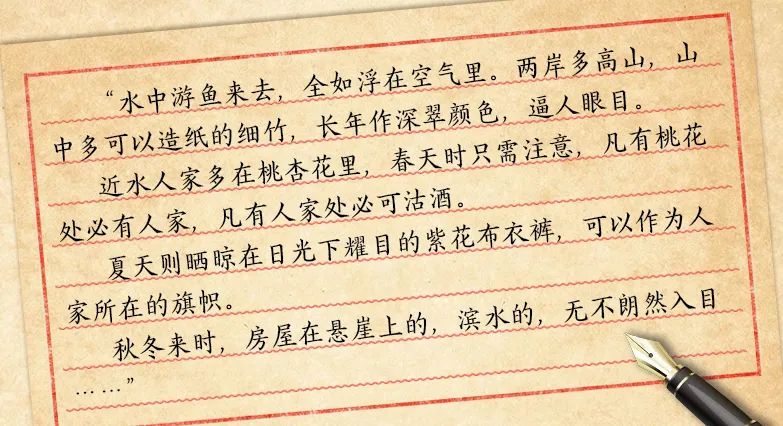 “水中游鱼来去，全如浮在空气里。两岸多高山，山
中多可以造纸的细竹，长年作深翠颜色，逼人眼目。
近水人家多在桃杏花里，春天时只需注意，凡有桃花
处必有人家，凡有人家处必可沽酒。
夏天则晒晾在日光下耀目的紫花布衣裤，可以作为人
家所在的旗帜。
秋冬来时，房屋在悬崖上的，滨水的，无不朗然入目
……”